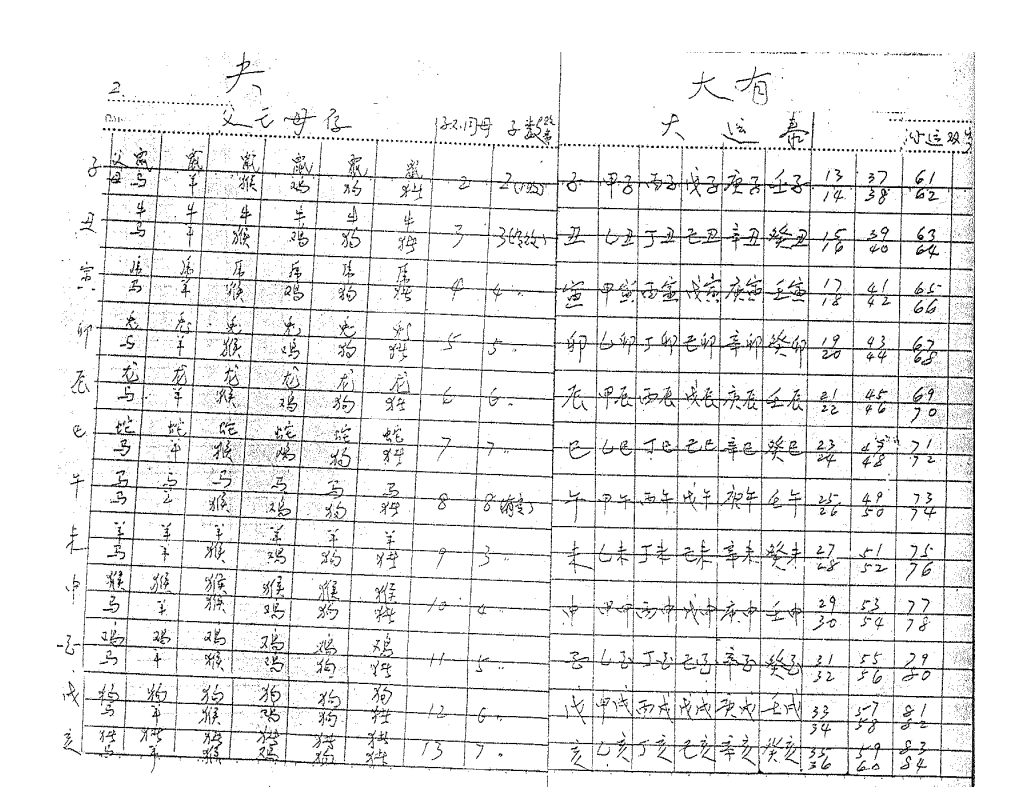 2. 夬 大有
父亡母存 子不同母 子数 大运 小运双
子 父鼠 鼠 鼠 鼠 鼠 鼠
母马 羊 猴 鸡 狗 猪 2 2 子 甲子 丙子 戊子 庚子 壬子 13 14 37 38 61 62
丑 牛 牛 牛 牛 牛 牛
马 羊 猴 鸡 狗 猪 3 3 丑 乙丑 丁丑 己丑 辛丑 癸丑 15 16 39 40 63 64
寅 虎 虎 虎 虎 虎 虎
马 羊 猴 鸡 狗 猪 4 4 寅 甲寅 丙寅 戊寅 庚寅 壬寅 17 18 41 42 65 66
卯 兔 兔 兔 兔 兔 兔
马 羊 猴 鸡 狗 猪 5 5 卯 乙卯 丁卯 己卯 辛卯 癸卯 19 20 43 44 67 68
辰 龙 龙 龙 龙 龙 龙
马 羊 猴 鸡 狗 猪 6 6 辰 甲辰 丙辰 戊辰 庚辰 壬辰 21 22 45 46 69 70
巳 蛇 蛇 蛇 蛇 蛇 蛇
马 羊 猴 鸡 狗 猪 7 7 巳 乙巳 丁巳 己巳 辛巳 癸巳 23 24 47 48 71 72
午 马 马 马 马 马 马
马 羊 猴 鸡 狗 猪 8 8 午 甲午 丙午 戊午 庚午 壬午 25 26 49 50 73 74
未 羊 羊 羊 羊 羊 羊
马 羊 猴 鸡 狗 猪 9 3 未 乙未 丁未 己未 辛未 癸未 27 28 51 52 75 76
申 猴 猴 猴 猴 猴 猴
马 羊 猴 鸡 狗 猪 10 4 申 甲申 丙申 戊申 庚申 壬申 29 30 53 54 77 78
鸡 鸡 鸡 鸡 鸡 鸡
马 羊 猴 鸡 狗 猪 11 5 31 32 55 56 79 80
戌 狗 狗 狗 狗 狗 狗
马 羊 猴 鸡 狗 猪 12 6 戌 甲戌 丙戌 戊戌 庚戌 壬戌 33 34 57 58 81 82
亥 猪 猪 猪 猪 猪 猪
马 羊 猴 鸡 狗 猪 13 7 亥 乙亥 丁亥 己亥 辛亥 癸亥 35 36 59 60 83 84